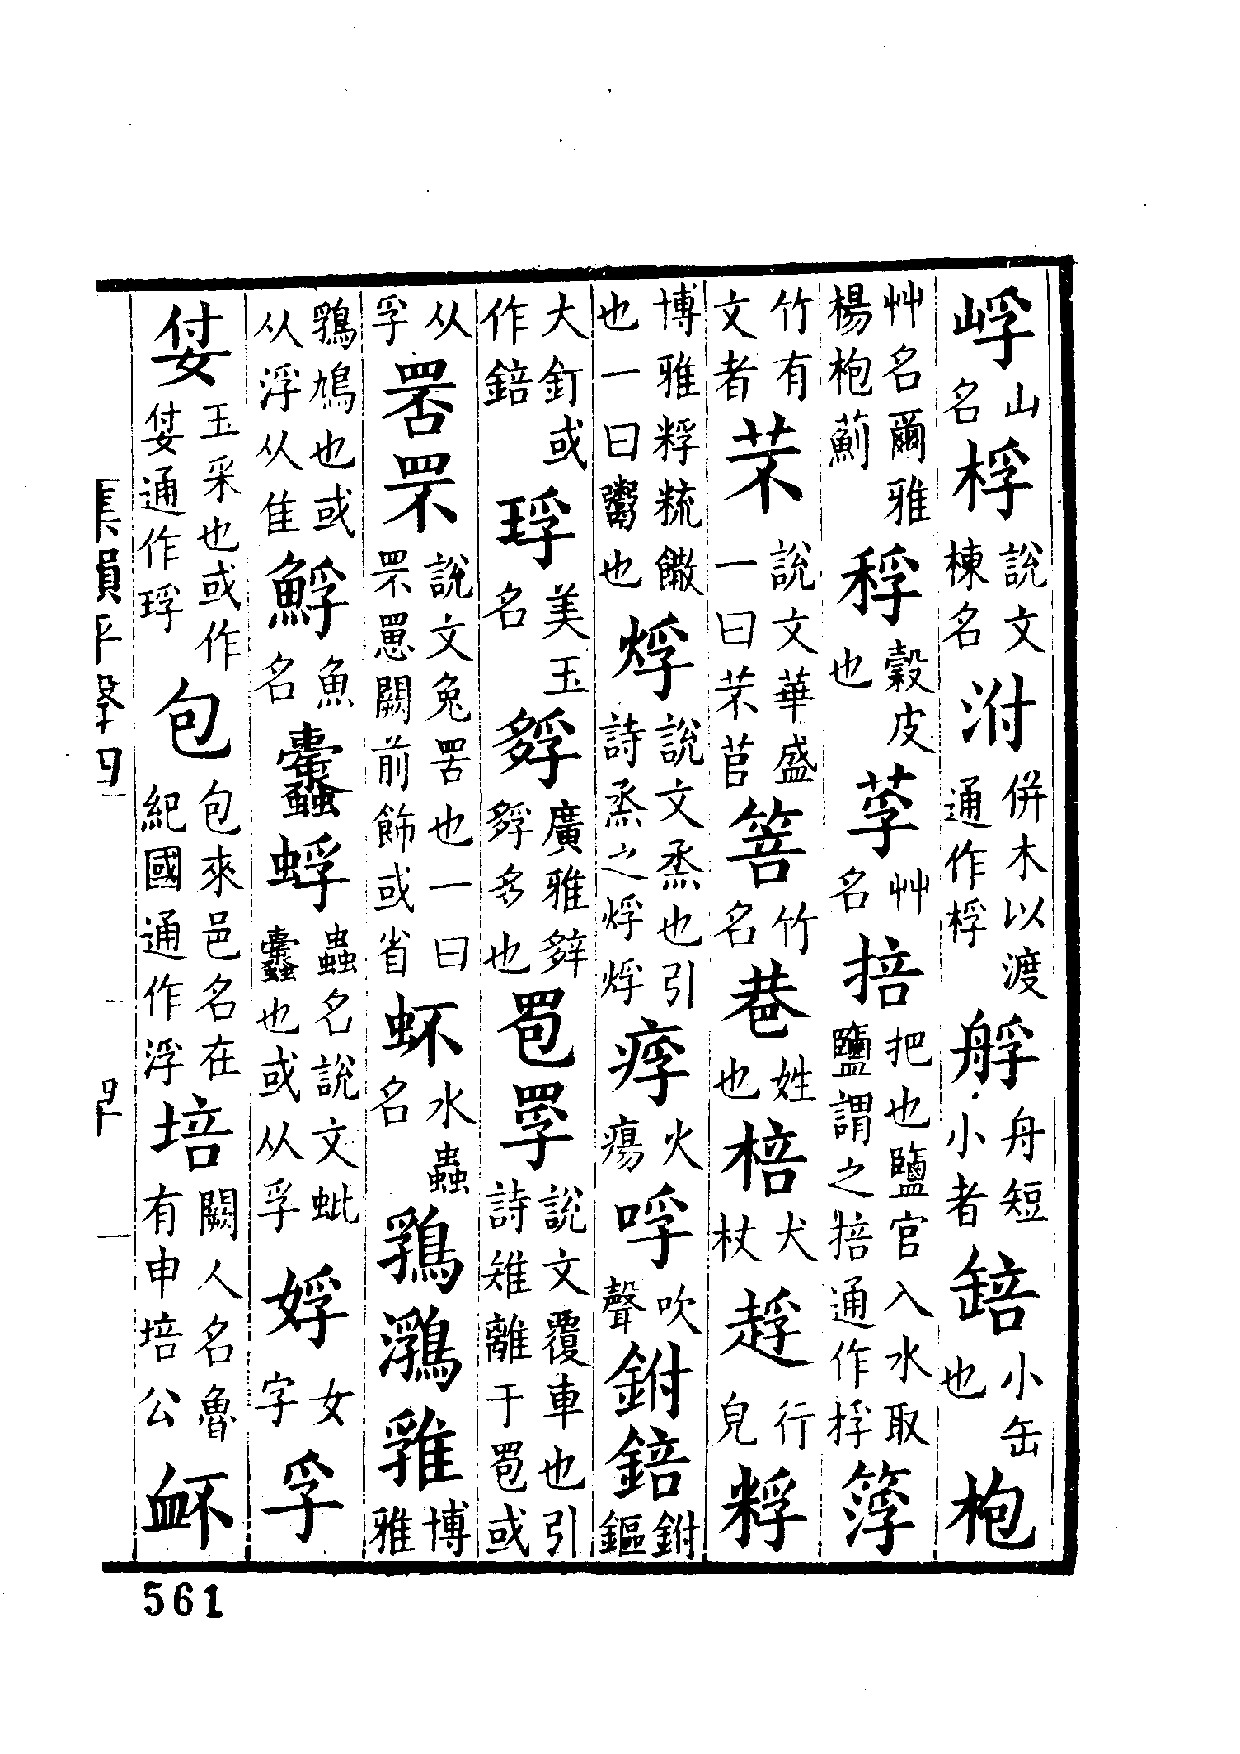 山名桴說文棟名泭併木以渡通作桴艀舟短小者䍌小缶也枹
艸名爾雅楊枹薊稃榖皮也莩艸名掊把也鹽官入水取鹽謂之掊通作捊
竹有文者芣說文華盛一曰芣苢箁竹名姓也棓犬杖行皃粰
博雅粰䊗饊也一曰鬻也烰說文烝也引詩烝之烰烰火瘍哹吹聲錇鏂
大釘或作錇琈美玉名廣雅多也䍖罦說文覆車也引詩雉離于䍖或
从孚罘說文兔罟也一曰罘罳闕前飾或省水蟲名博雅
鳩也或从浮从隹魚名蜉蟲名說文蚍也或从孚娐女字孚
玉采也或作通作琈包包來邑名在紀國通作浮培闕人名魯有申培公衃
集韻平聲四
561